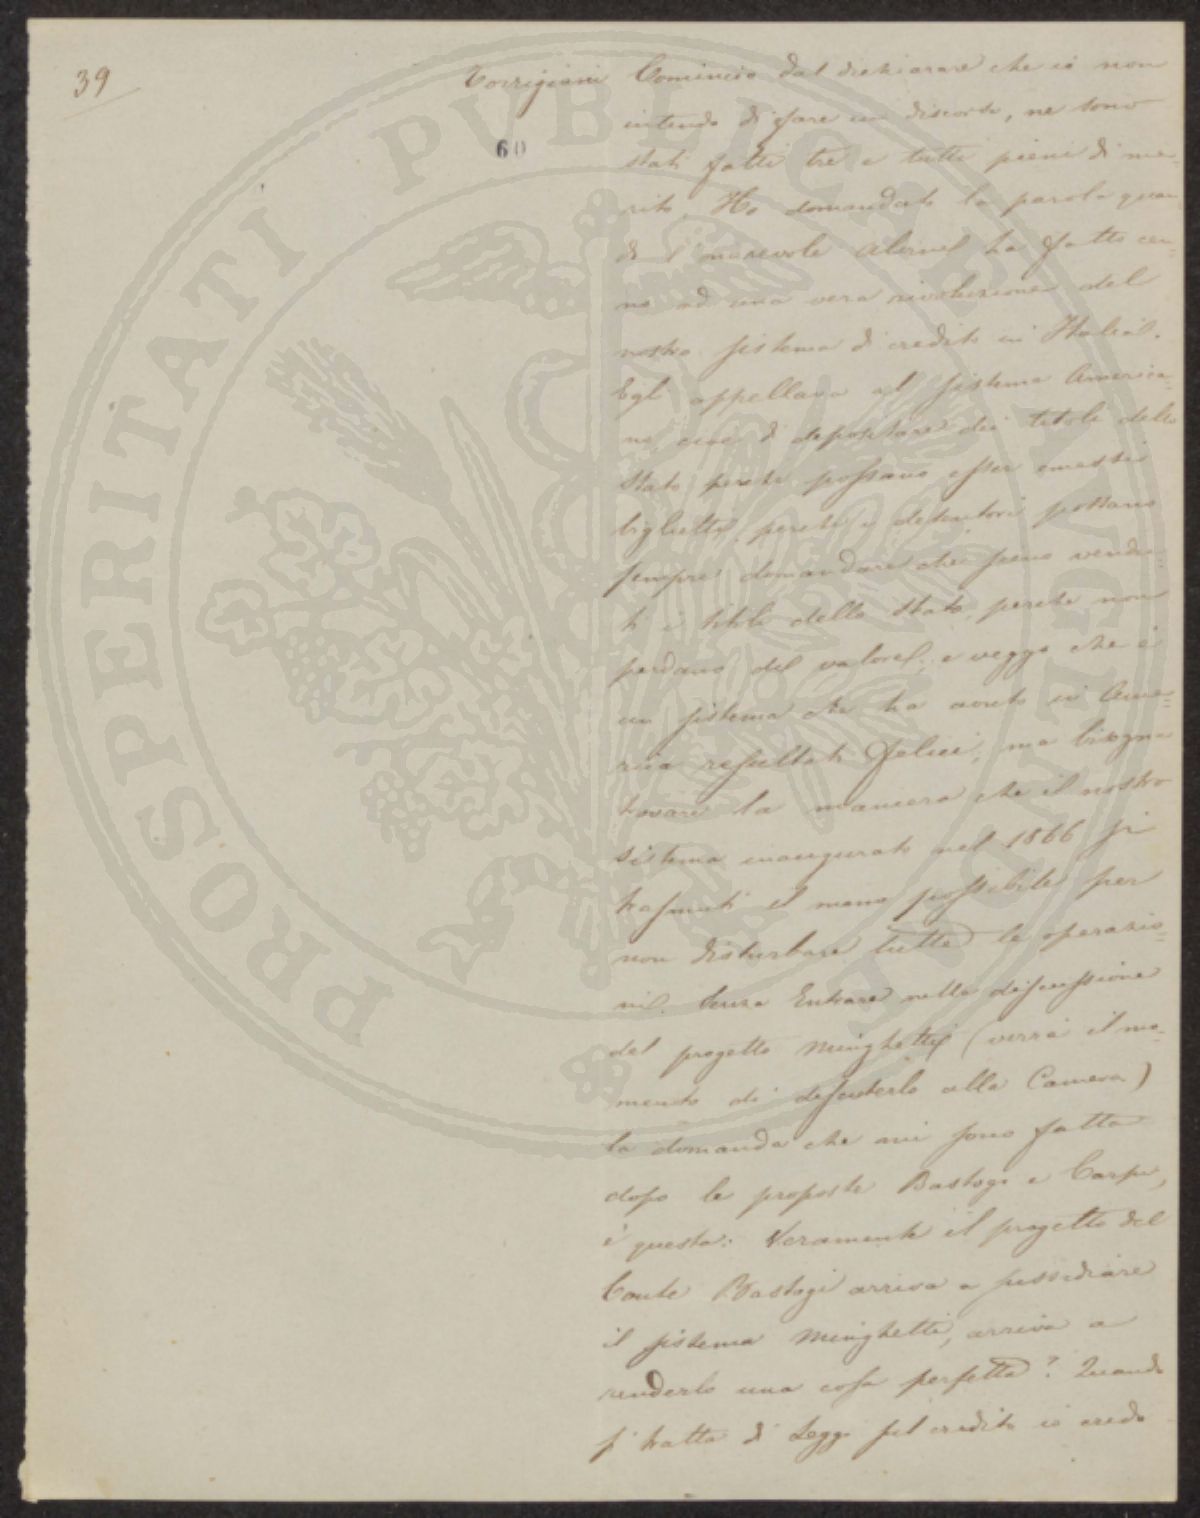 39
60
Torrigiani Comincio dal dichiarare che io non
intendo di fare un discorso, ne sono
stati fatti tre e tutti pieni di me-
rito. Ho domandato la parola quan
do l'onorevole Alvisi ha fatto cen-
no ad una vera rivoluzione del
nostro sistema di credito in Italia.
Egli appellava al sistema America-
no, cioè di depositare dei titoli dello
Stato perchè possano esser emessi
biglietti, perchè i detentori possano
sempre domandare che sieno vendu-
ti i titoli dello Stato, perchè non
perdano del valore; e veggo che è
un sistema che ha avuto in Ame-
rica resultati felici; ma bisogna
trovare la maniera che il nostro
sistema inaugurato nel 1866 si
trasmuti il meno possibile per
non disturbare tutte le operazio-
ni. Senza Entrare nella discussione
del progetto Minghetti (verrà il mo-
mento di discuterlo alla Camera)
la domanda che mi sono fatta
dopo le proposte Bastogi e Carpi,
è questa: Veramente il progetto del
Conte Bastogi arriva a sussidiare
il sistema Minghetti, arriva a
renderlo una cosa perfetta? Quando
si tratta di Leggi sul credito io credo
PROSPERITATI PVBLICAE AVGENDAE